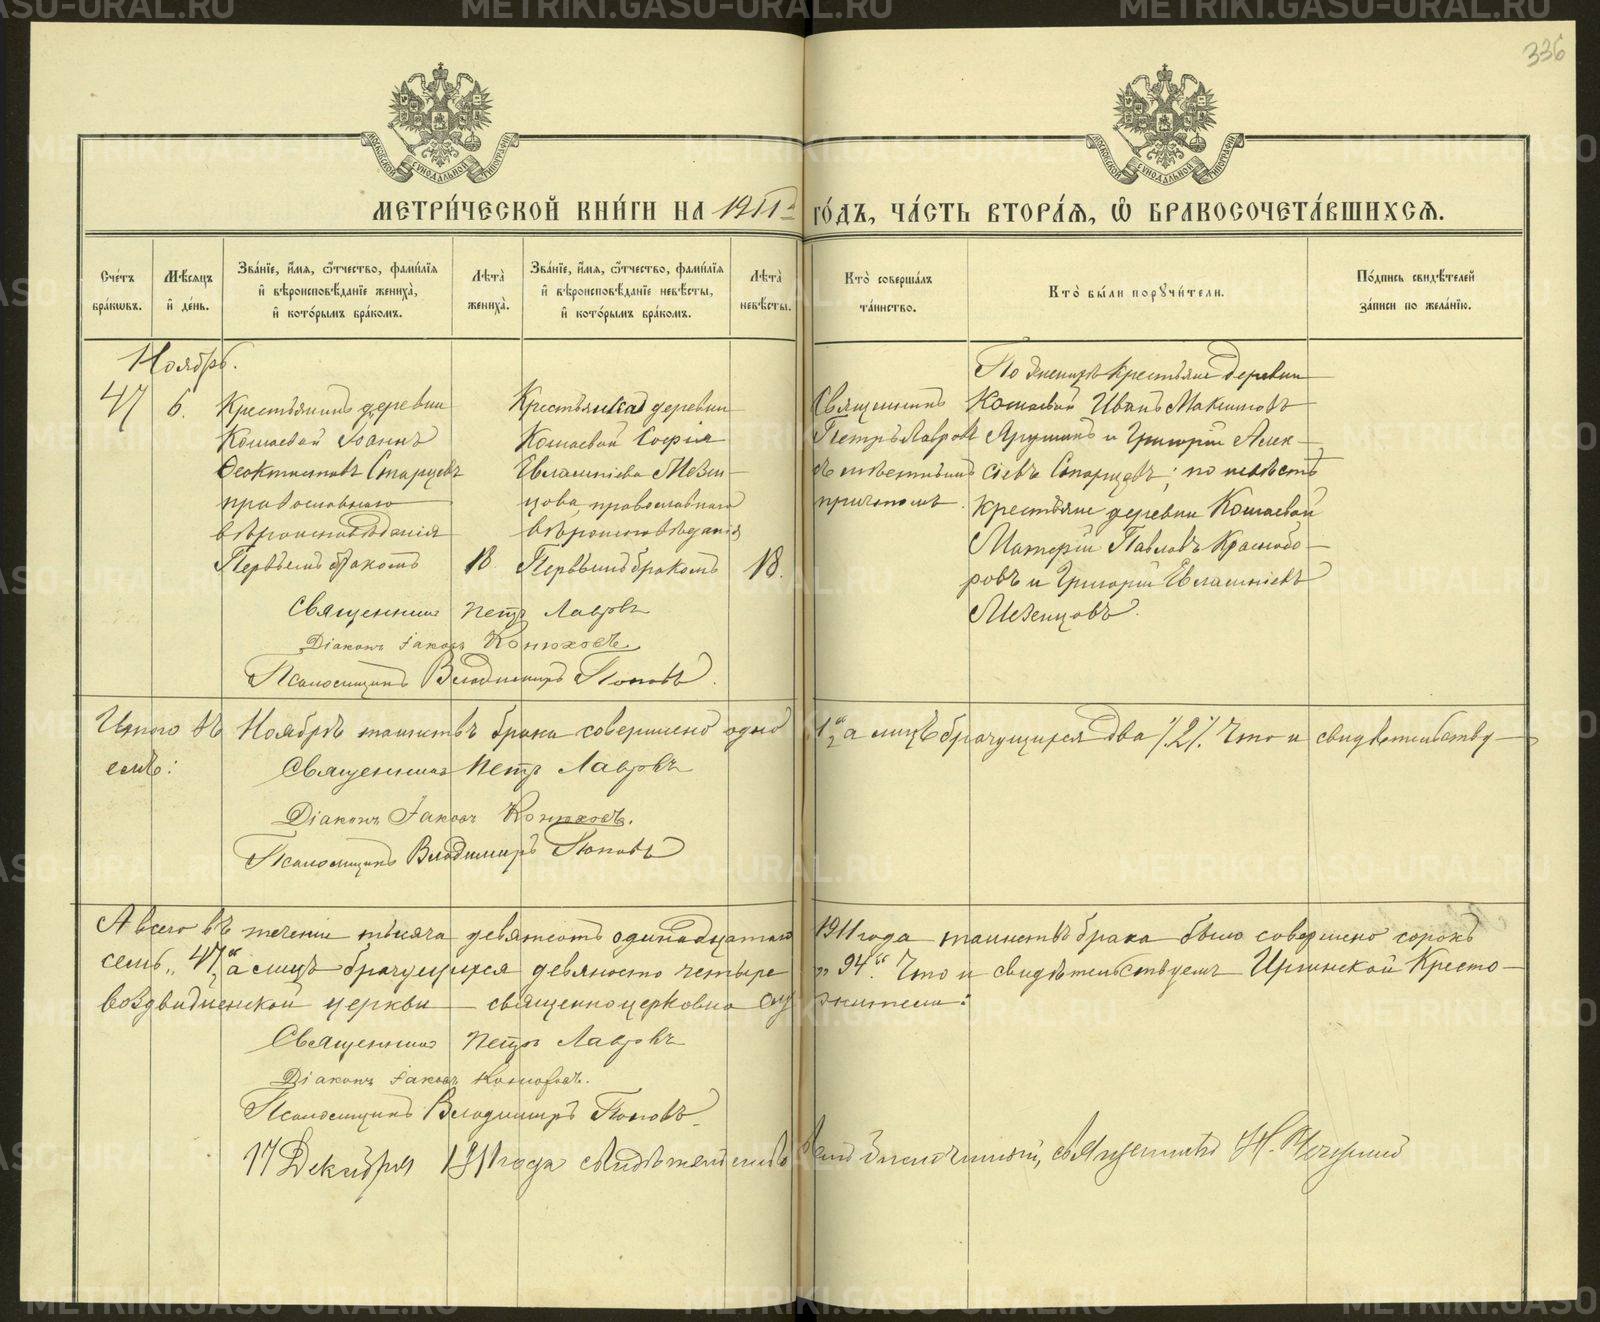 336
МЕТРИ́ЧЕСКОЙ КНИ́ГИ НА 1911й ГО́ДЪ, ЧА́СТЬ ВТОРА́Я, Ѽ БРАКОСОЧЕТА́ВШИХСЯ.
Сче́тъ бра́кѡвъ.
Мѣ́сяцъ и҆ де́нь.
Зва́нїе, и҆́мя, ѻ҆́тчество, фами́лїя и҆ вѣроисповѣ́данїе жениха̀, и҆ кото́рымъ бра́комъ.
Лѣ́та̀ жениха̀.
Зва́нїе, и҆́мя, ѻ҆́тчество, фами́лїя и҆ вѣроисповѣ́данїе невѣ́сты, и҆ кото́рымъ бра́комъ.
Лѣ́та̀ невѣ́сты.
Кто̀ соверша́лъ та́инство.
Кто̀ бы́ли порꙋчи́тели.
По́дпись свидѣ́телей за́писи по жела́нїю.
Ноябрь.
47
6.
Крестьянинъ деревни
Кошаевой Іоаннъ
Ѳеоктистовъ Старцевъ
православнаго
вѣроисповѣданія
Первымъ бракомъ
18
Крестьянка деревни
Кошаевой Софія
Евлампіева Мезен-
цова, православнаго
вѣроисповѣданія
Первымъ бракомъ
18.
Священникъ
Петръ Лавровъ
съ
причтомъ.
По женихѣ крестьяне деревни
Кошаевой Иванъ Максимовъ
и Григорій Алек-
сіевъ Старцевъ; по невѣстѣ
крестьяне деревни Кошаевой
Павловъ Краснобо-
ровъ и Григорій Евлампіевъ
Мезенцовъ.
Священникъ Петръ Лавровъ
Діаконъ Іаковъ Конюховъ
Псаломщикъ Владимиръ Поповъ.
Итого въ Ноябрѣ таинствъ брака совершено одно „1“ а лицъ брачущихся два /.2/. Что и свидѣтельству-
емъ:
Священникъ Петръ Лавровъ
Діаконъ Іаковъ Конюховъ.
Псаломщикъ Владимиръ Поповъ
А всего въ теченіи тысяча девятсотъ одинадцатаго 1911 года таинствъ брака было совершено сорокъ
семь „47“ а лицъ брачущихся девяносто четыре „94“. Что и свидѣтельствуемъ Иргинской Кресто-
воздвиженской церкви священноцерковно служители:
Священникъ Петръ Лавровъ
Діаконъ Іаковъ Конюховъ.
Псаломщикъ Владимиръ Поповъ.
17 Декабря 1911 года священникъ Н.
METRIKI.GASO-URAL.RU